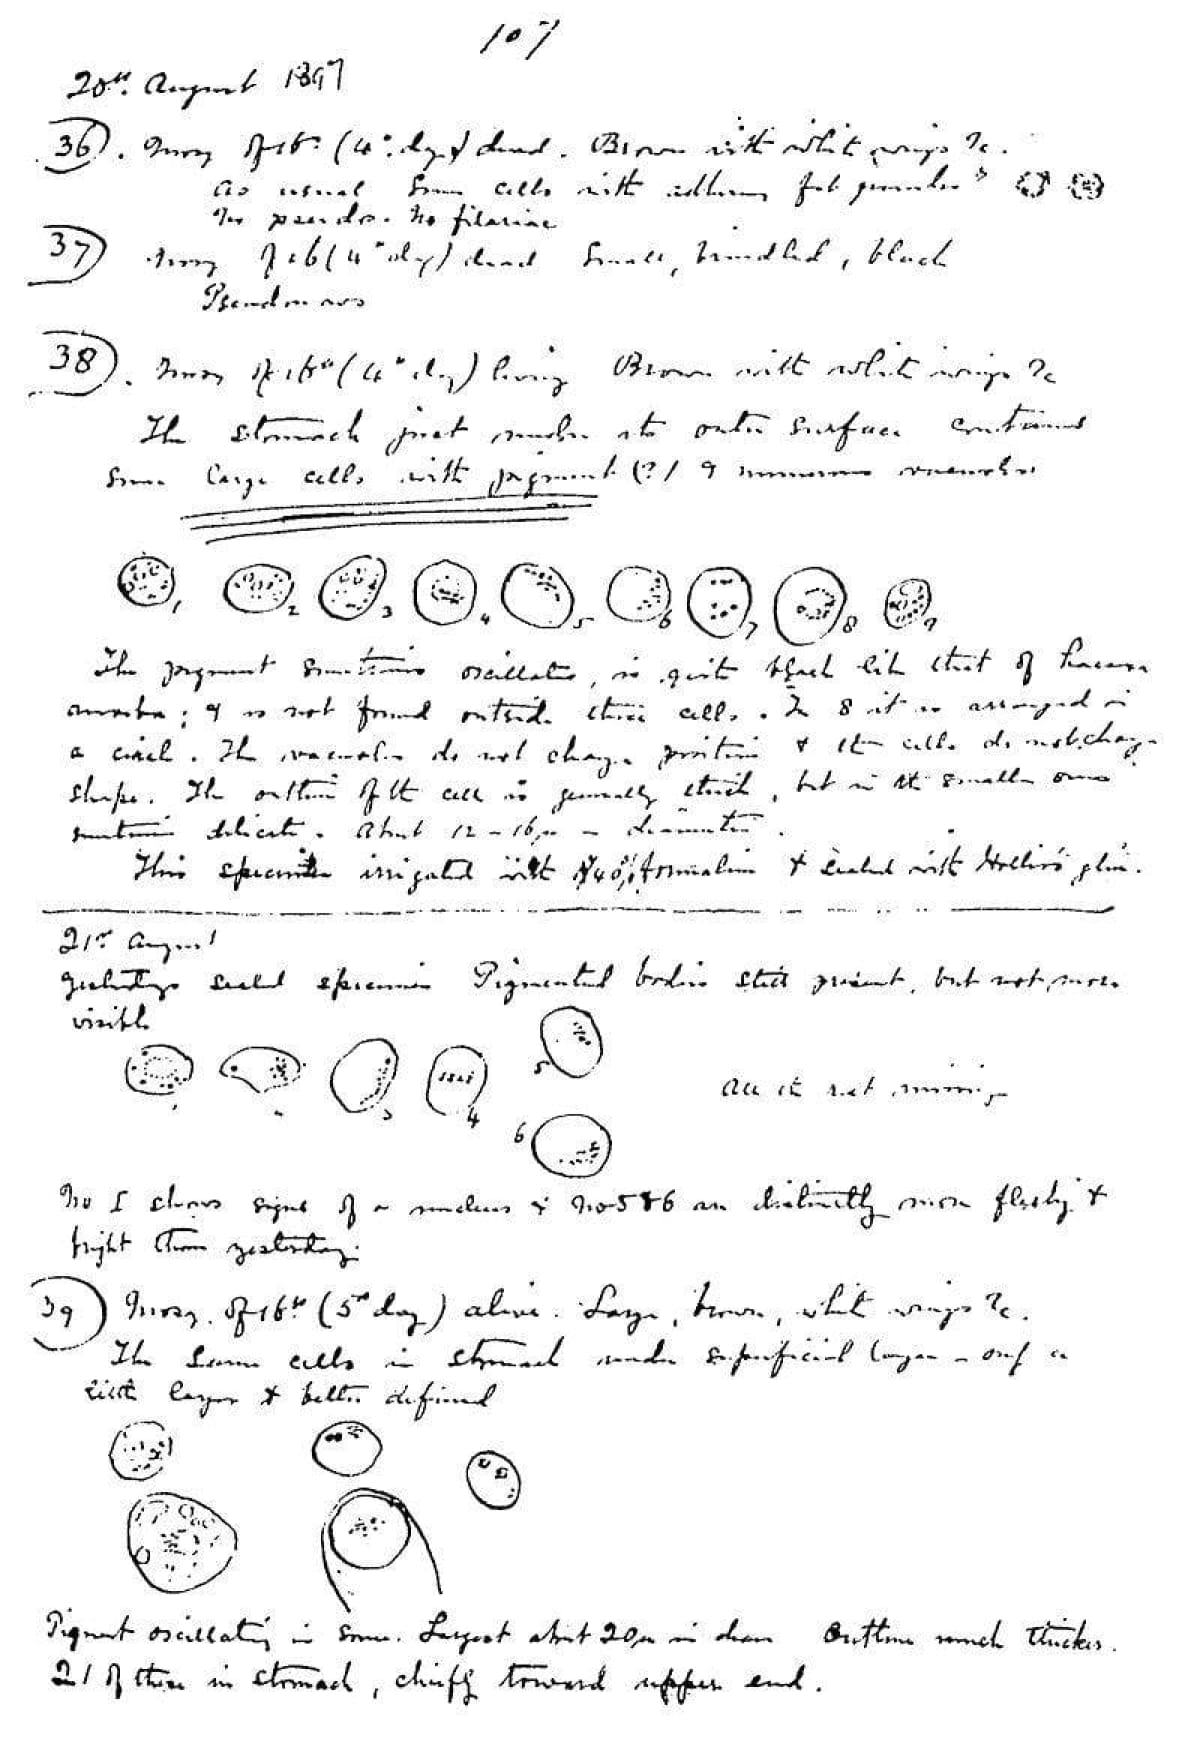 107
20th August 1897
36). Mosq of 16th (4th day) dead. Brown with white wings &c.
As usual Some cells with adhering fat granules
No pseudo. No filariae
37) Mosq of 16 (4th day) dead Small, brindled, black
Pseudo
38). Mosq of 16th (4th day) living Brown with white wings &c
The stomach just under its outer surface contained
some large cells with pigment (?) & numerous vacuoles
1 2 3 4 5 6 7 8 9
The pigment sometimes oscillates, is quite black like that of
amoeba; & is not found outside these cells. In 8 it is arranged in
a circle. The vacuoles do not change position & the cells do not change
shape. The outline of the cell is generally thick, but in the smaller ones
sometimes delicate. About 12 - 16µ in diameter.
This specimen irrigated with 40% formalin & sealed with Hollis's glue.
21st August
Yesterdays sealed specimen Pigmented bodies still present, but not more
visible
1 2 3 4 5
All the rest missing
6
No 1 shows signs of a nucleus & No 5 & 6 are distinctly more fleshy &
bright than yesterday.
39) Mosq. of 16th (5th day) alive. Large, brown, white wings &c.
The same cells in stomach under superficial layer - only a
little larger & better defined
Pigment oscillating in some. Largest about 20µ in diam Outline much thicker.
21 of these in stomach, chiefly toward upper end.